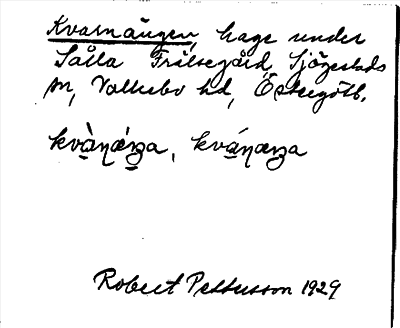 Kvarnängen, hage under
Sålla Frälsegård, Sjögestads
sn, Valkebo hd, Östergötl.
Robert Pettersson 1929